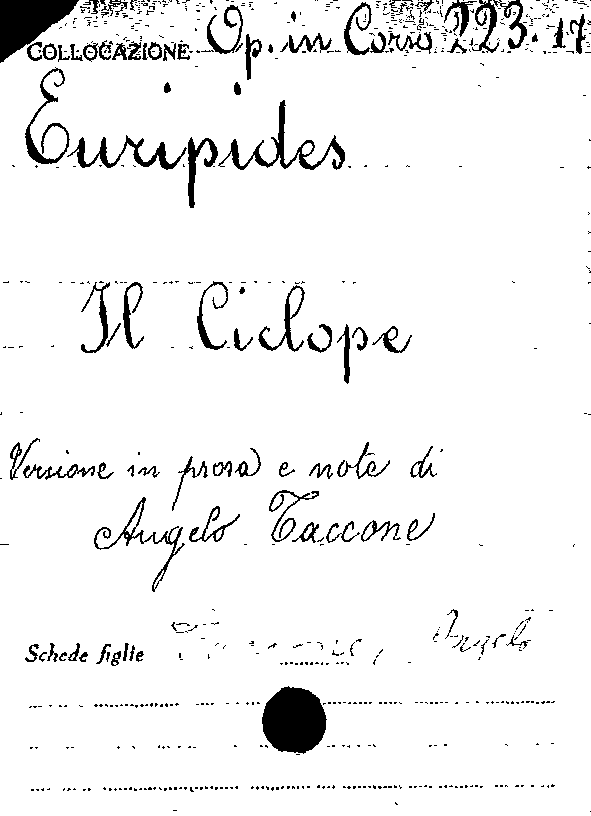 COLLOCAZIONE Op. in Corso 223. 17
Euripides
Il Ciclope
Versione in prosa e note di
Angelo Taccone
Schede figlie Taccone, Angelo